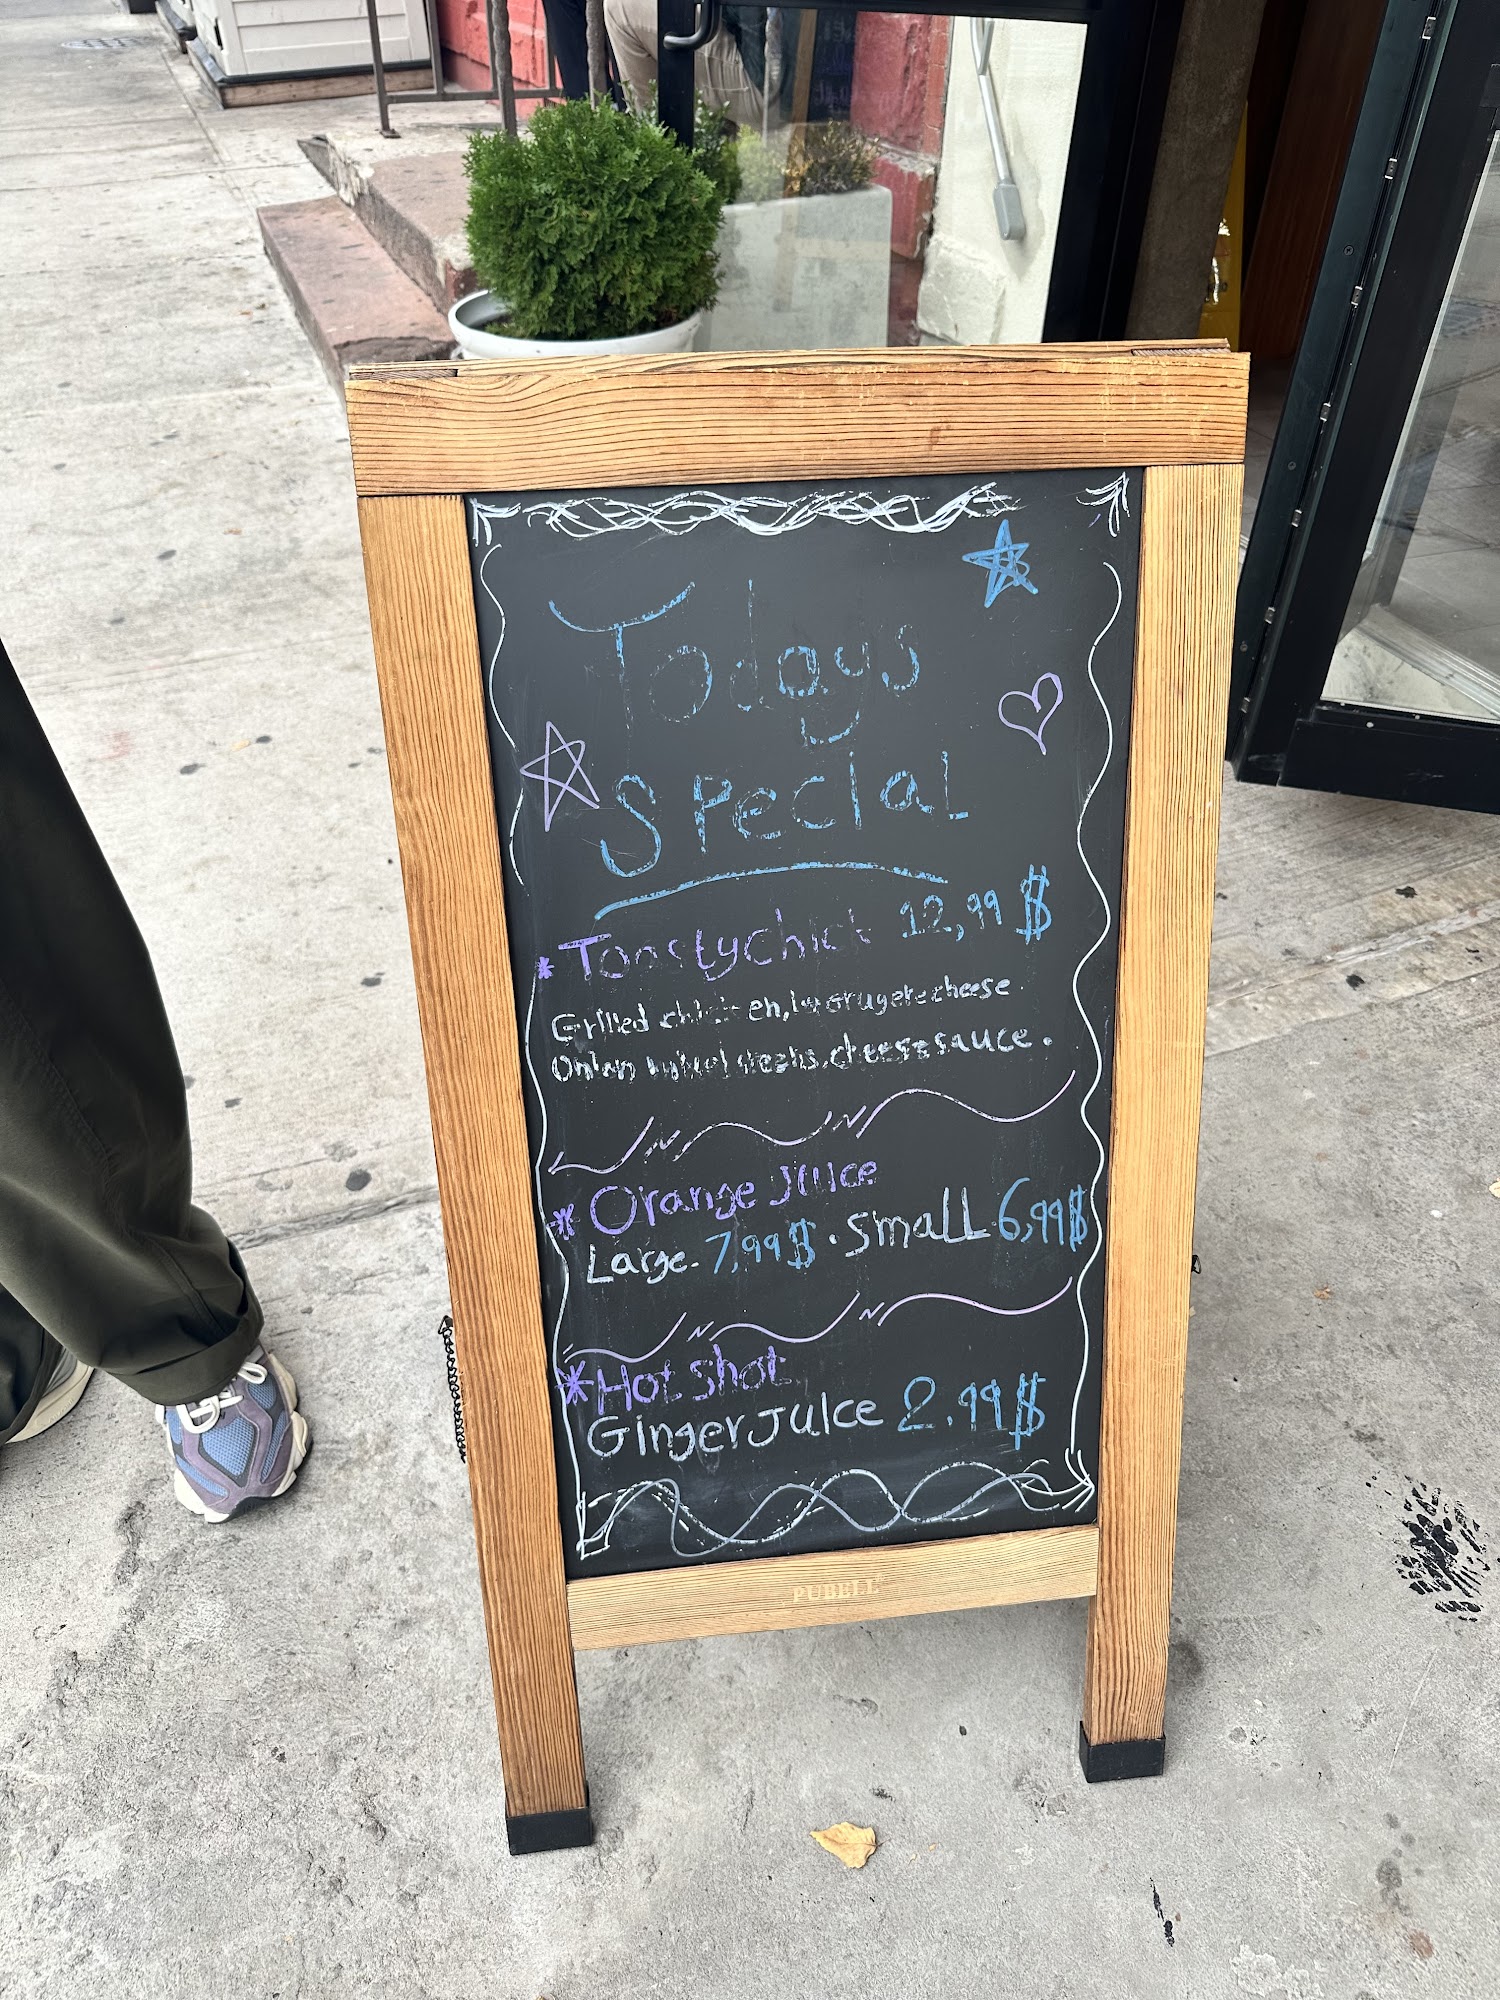 Todays
Special
*Toasty Chick 12,99$
Grilled chicken, gruyere cheese
Onion cheese sauce.
*Orange Juice
Large. 7,99$ . small 6,99$
*Hot shot
Ginger Juice 2.99$
PUBELL